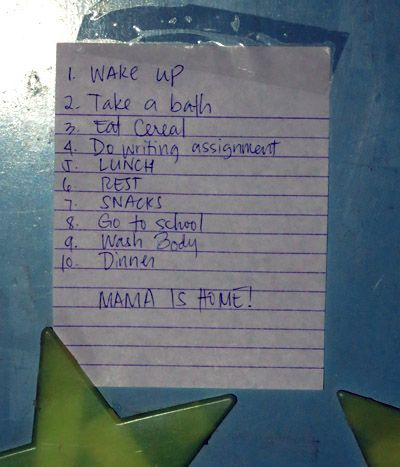 1. WAKE UP
2. Take a bath
3. Eat Cereal
4. Do writing assignment
5. LUNCH
6. REST
7. SNACKS
8. Go to school
9. Wash Body
10. Dinner
MAMA IS HOME!